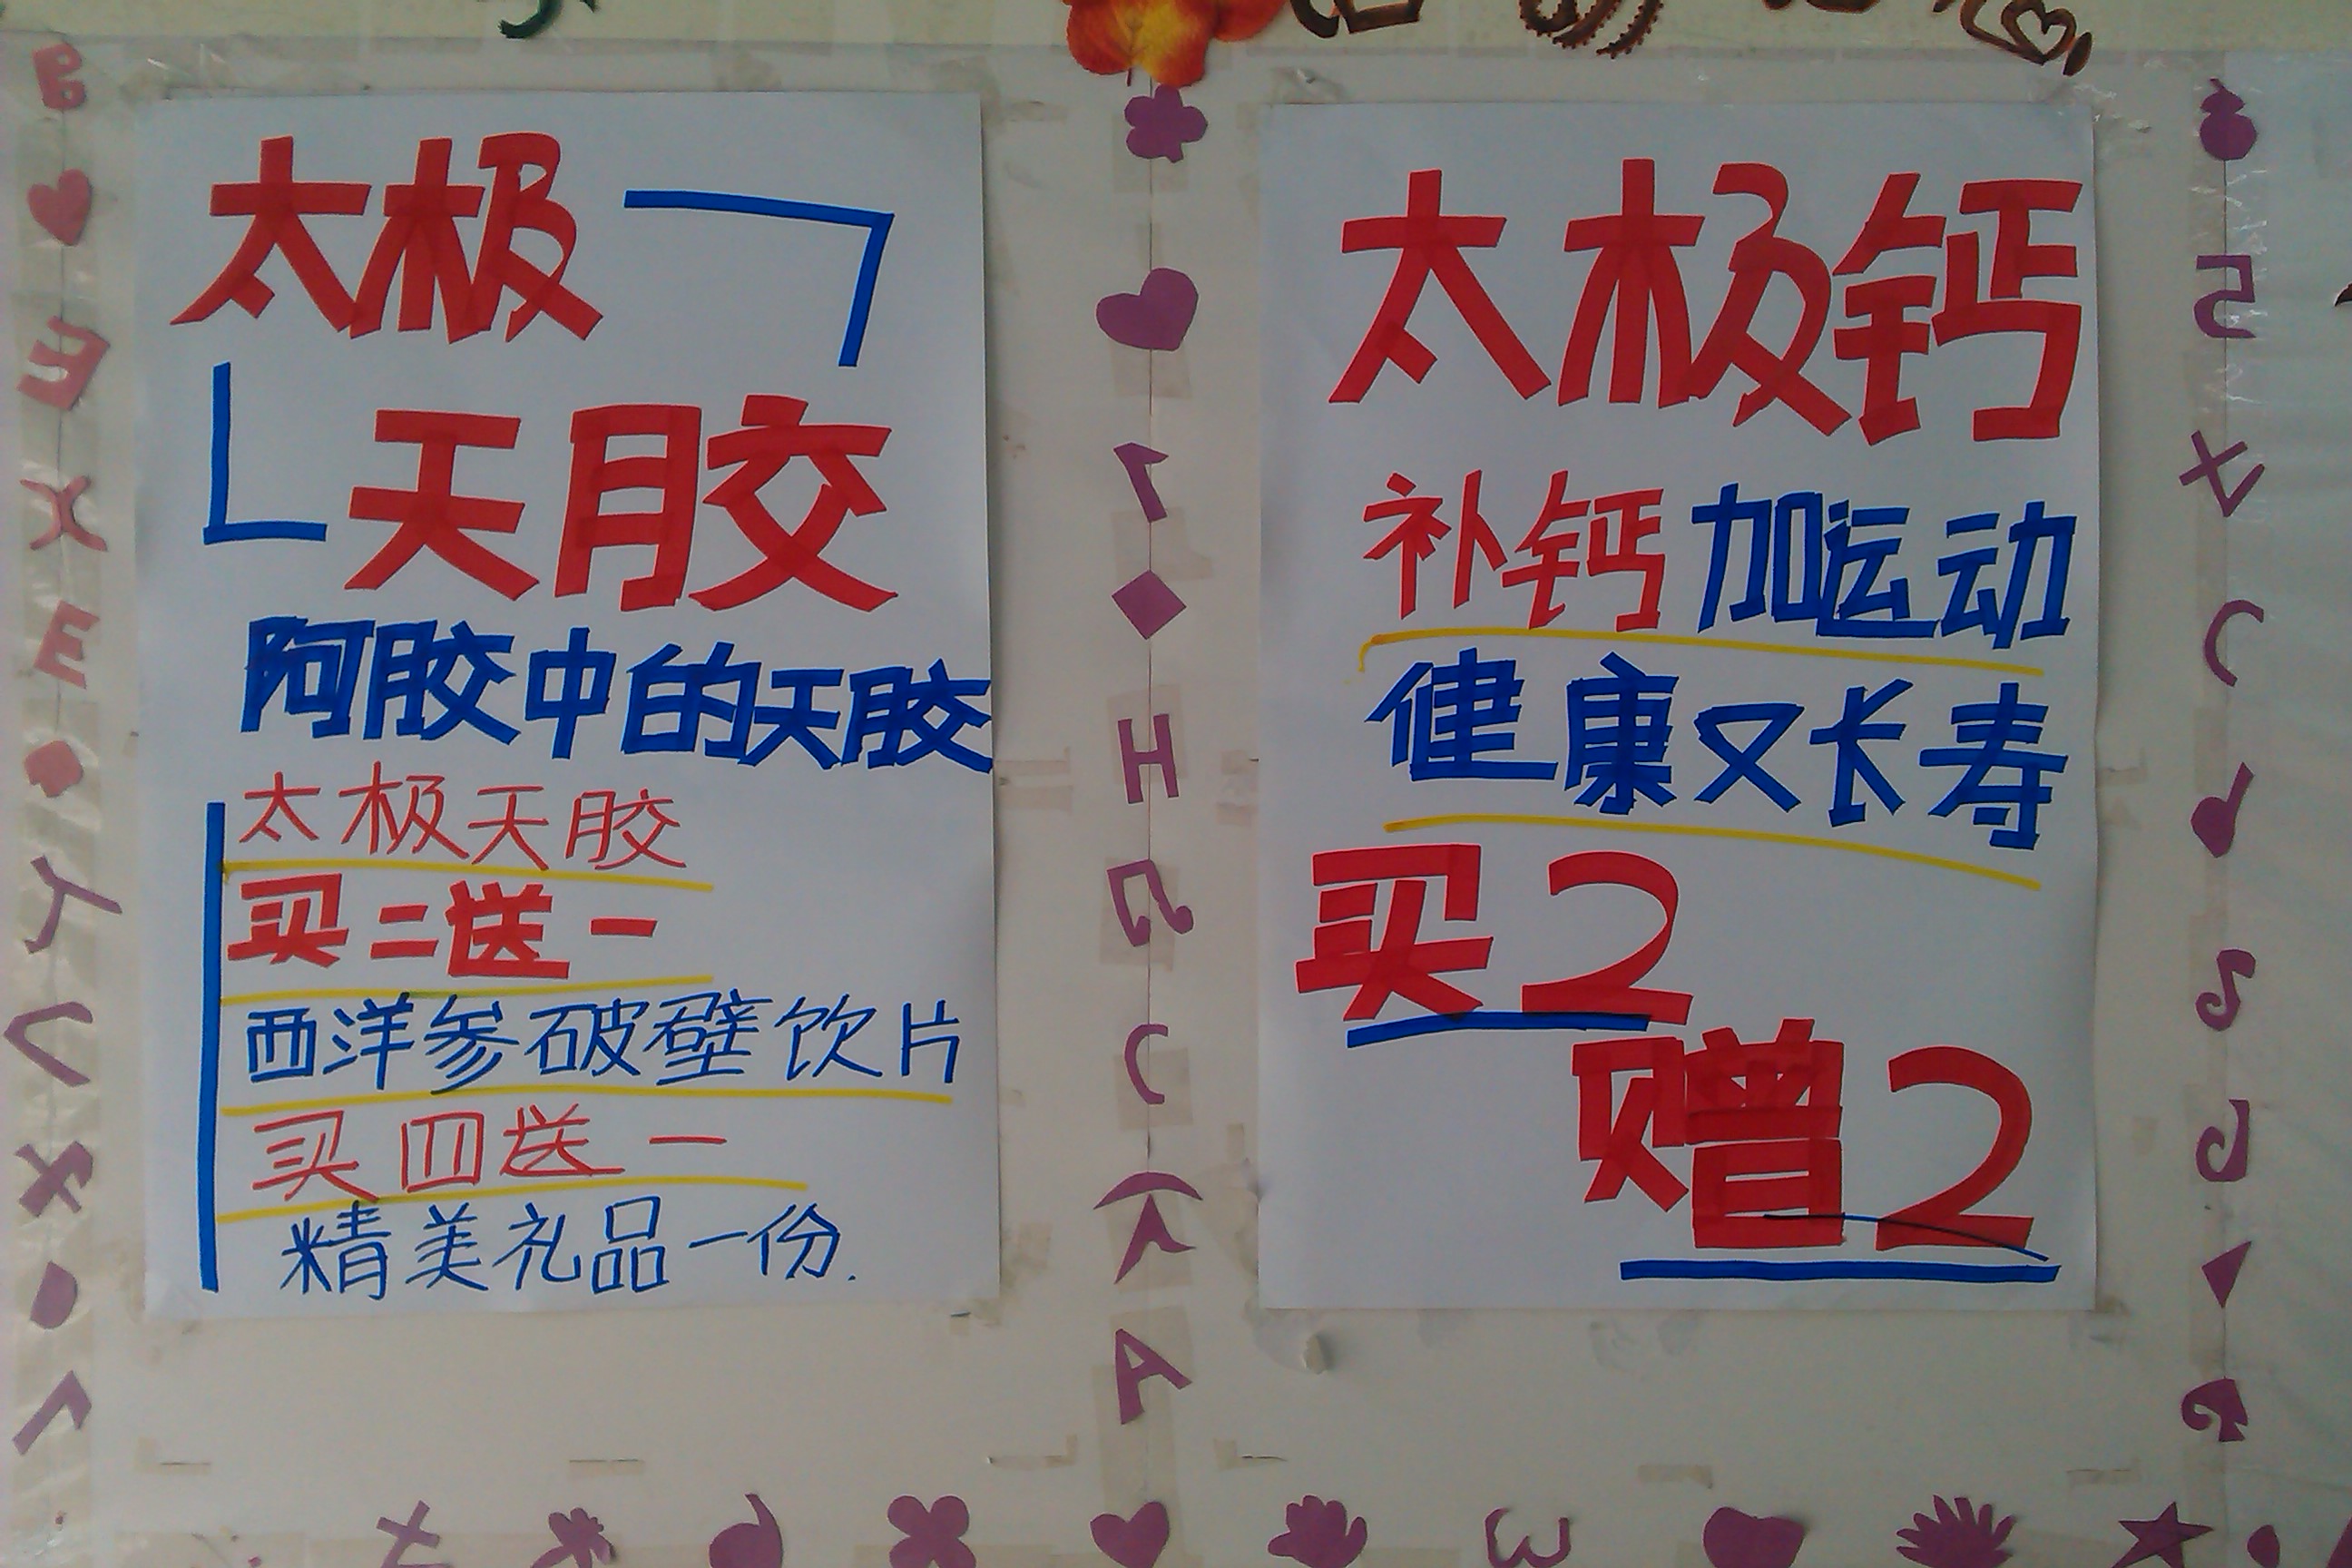 太极
天胶
阿胶中的天胶
太极天胶
买二送一
西洋参破壁饮片
买四送一
精美礼品一份.
太极钙
补钙加运动
健康又长寿
买2
赠2